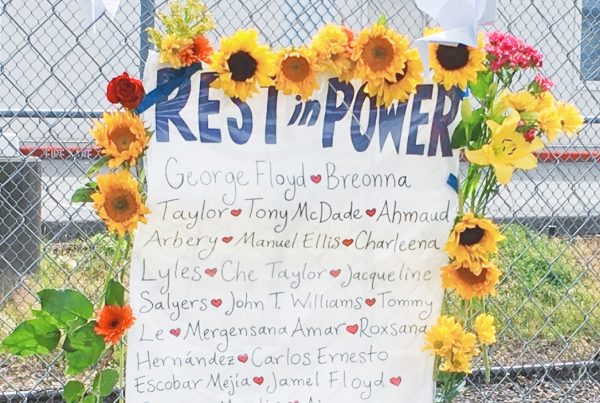 REST in POWER
George Floyd♥Breonna
Taylor♥Tony McDade♥Ahmaud
Arbery♥Manuel Ellis♥Charleena
Lyles♥Che Taylor♥Jacqueline
Salyers♥John T. Williams♥Tommy
Le♥Mergensana Amar♥Roxsana
Hernández♥Carlos Ernesto
Escobar Mejía♥Jamel Floyd♥